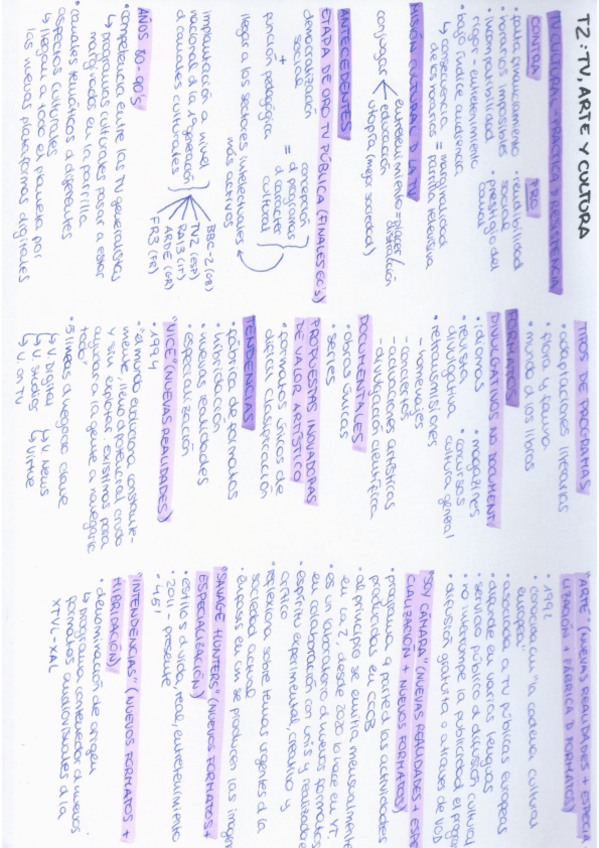 T2: TV, ARTE Y CULTURA
TV CULTURAL - PRÁCTICA D RESISTENCIA
CONTRA
PRO
• pauta
• rentabilidad
• horarios imposibles
social
• incompatibilidad
• prestigio del
rigor - entretenimiento
canal
• bajo índice audiencia
↳ consecuencia = marginalidad
de los horarios parrilla televisiva
MISIÓN CULTURAL D LA TV
entretenimiento = placer/
conjugar educación
utopía (mejor sociedad)
ANTECEDENTES
ETAPA DE ORO TV PÚBLICA (FINALES 60'S)
democratización
social
+
función pedagógica
= concepción
d programas
d carácter
cultural
llegar a los sectores intelectuales
más activos
implantación a nivel
nacional d la 1ª generación
d canales culturales
BBC-2 (GB)
TV2 (ESP)
RAI3 (IT)
FR3 (FR)
AÑOS 80-90'S
• competencia entre las TV generalistas
↳ programas culturales pasar a estar
marginados en la parrilla
• canales temáticos d diferentes
aspectos culturales
↳ llegan a todo el planeta por
las nuevas plataformas digitales
TIPOS DE PROGRAMAS
• adaptaciones literarias
• flora y fauna
• mundo d los libros
FORMATOS
DIVULGATIVOS NO DOCUMENT
• idiomas
• magazines
• revista
• concursos
divulgativa
cultura general
• retransmisiones
- homenajes
- conciertos
- creaciones artísticas
- divulgación científica
DOCUMENTALES
• obras únicas
• series
PROPUESTAS INNOVADORAS
DE VALOR ARTÍSTICO
• formatos únicos de
difícil clasificación
TENDENCIAS
• fábrica de formatos
• hibridación
• nuevas realidades
• especialización
"VICE" (NUEVAS REALIDADES)
• 1994
• "el mundo evoluciona constante-
mente, lleno d potencial crudo
y sin explotar. existimos para
ayudar a la gente a navegarlo
todo"
• 5 líneas d negocio clave
↳ V. Digital
↳ V. News
↳ V. Studios
↳ Virtue
↳ V. on TV
"ARTÉ" (NUEVAS REALIDADES + ESPECIA
LIZACIÓN + FÁBRICA D FORMATOS)
• 1992
• conocida cm "la cadena cultural
europea"
• asociada a TV públicas europeas
• difunde en varias lenguas
• servicio público d difusión cultural
• no interrumpe la publicidad el progra
• difusión gratuita o a través de VOD
"SOY CÁMARA" (NUEVAS REALIDADES + ESPE
CIALIZACIÓN + NUEVOS FORMATOS)
• programa q parte d las actividades
producidas en CCCB
• al principio se emitía mensualmente
en La 2, desde 2020 lo hace en YT.
• es un laboratorio d nuevos formatos
en colaboración cn unis y realizadore
• espíritu experimental, creativo y
crítico
• reflexiona sobre temas urgentes d la
sociedad actual
• énfasis en cm se producen las imagen
"SALVAGE HUNTERS" (NUEVOS FORMATOS +
ESPECIALIZACIÓN)
• estilos d vida, real, entretenimiento
• 2011 - presente
• 45'
"INTENDENCIAS" (NUEVOS FORMATOS +
HIBRIDACIÓN)
• denominación de origen
↳ programa contenedor d nuevos
formatos audiovisuales d la
XTVL-XAL